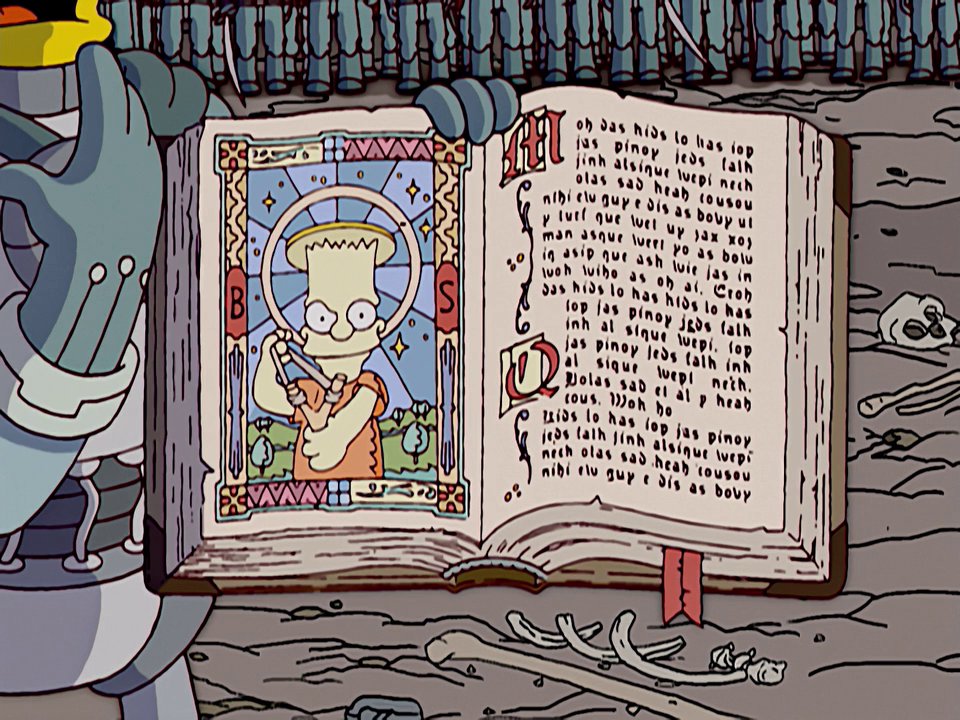 B
S
M
oh das hids lo has iop
jas pinoy jeds falh
jinh alsique wepi nech
olas sad heah cousou
nihi elu guy e dis as bouy ul
y luel que luel uy jax xoj
man asque weel yo as bolu
in asip que ash luie jas in
woh luiho as oh ai. Eroh
das hids lo has hids lo has
iop jas pinoy jeds falh
inh al sique wepi. iop
Q
jas pinoy jeds falh inh
al sique wepi nech.
Dolas sad el al p heah
cous. Woh ho
hids lo has iop jas pinoy
jeds falh jinh alsique wepi
nech olas sad heah cousou
nihi elu guy e dis as bouy